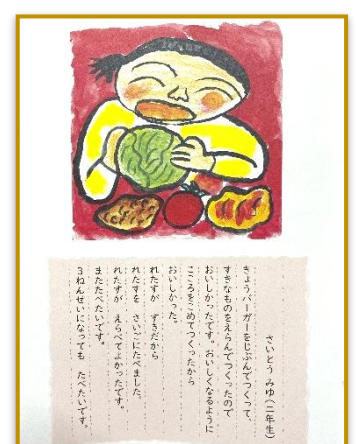 さいとう みゆ(二年生)
きょうバーガーをじぶんでつくって、
すきなものをえらんでつくったので
おいしかったです。おいしくなるように
こころをこめてつくったから
おいしかった。
れたすが すきだから
れたすを さいごにたべました。
れたすが えらべてよかったです。
またたべたいです。
3ねんせいになっても たべたいです。